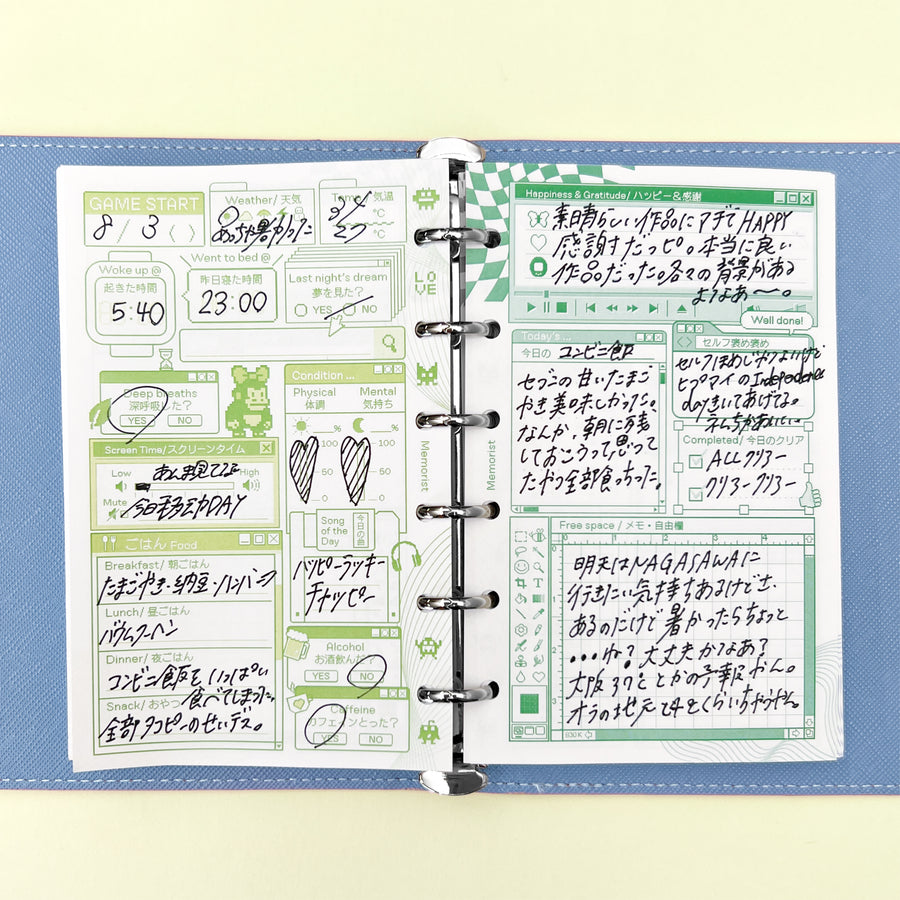 GAME START
8/3 〈 〉
Weather/ 天気
めっちゃ暑かった
Temp/ 気温
℃
℃
27
Woke up @
起きた時間
5:40
Went to bed @
昨日寝た時間
23:00
Last night's dream
夢を見た?
YES NO
Deep breaths
深呼吸した?
YES NO
Screen Time/スクリーンタイム
Low High
あんま見てない
Mute
今日移動DAY
Condition ...
Physical Mental
体調 気持ち
% %
100 100
50 50
0 0
Song of the Day
今日の曲
ハッピーラッキー
チャッピー
ごはん Food
Breakfast/ 朝ごはん
たまごやき・納豆・ハンバーグ
Lunch/ 昼ごはん
バウムクーヘン
Dinner/ 夜ごはん
コンビニ飯をいっぱい
Snack/ おやつ 食べてしまった。
全部タコピーのせいデス。
Alcohol
お酒飲んだ?
YES NO
Caffeine
カフェインとった?
YES NO
LOVE
Memorist
Memorist
Happiness & Gratitude/ ハッピー&感謝
素晴らしい作品にアざでHAPPY
感謝すだっピ。本当に良い
作品だった。各々の背景がある
よなあ〜。
Today's ...
今日の コンビニ飯
セブンの甘いたまご
やき美味しかった。
なんか、朝に残
しておこうって思って
たやつ全部食っちった。
Well done!
セルフ褒め褒め
セルフほめじゃないけど
ヒプマイのIndependence
day きいてあげてる。
Completed/ 今日のクリア
ALLクリアー
クリアークリアー
Free space / メモ・自由欄
明天はNAGASAWAに
行きたい気持ちあるけどさ
あるのだけど暑かったらちょっと
・・・ね? 大丈夫かなあ?
大阪37℃とかの予報やん。
オラの地元で42くらいちゃうやん。
830K